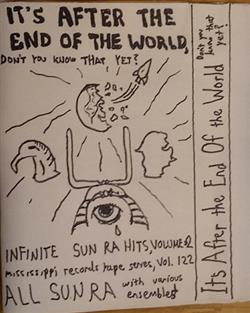 IT'S AFTER THE
END OF THE WORLD,
DON'T YOU KNOW THAT YET?
INFINITE SUN RA HITS, VOLUME 2
mississippi records tape series, Vol. 122
ALL SUN RA with various
ensembles
It's After the End Of the World
Don't you
know that
yet?